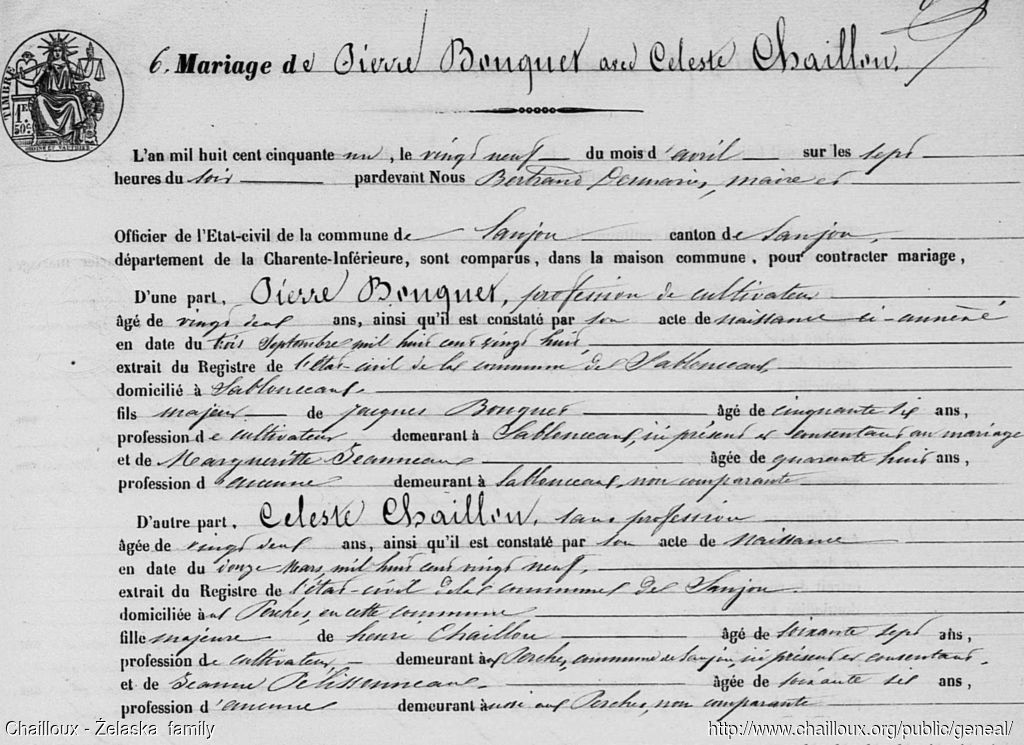 6. Mariage de Pierre Bouquet avec Celeste Chaillou.
TIMBRE
1F
50C
L'an mil huit cent cinquante un, le vingt neuf du mois d'avril sur les sept
heures du soir pardevant Nous Bertrand maire et
Officier de l'Etat-civil de la commune de Saujon canton de Saujon,
département de la Charente-Inférieure, sont comparus, dans la maison commune, pour contracter mariage,
D'une part, Pierre Bouquet, profession de cultivateur
âgé de vingt deux ans, ainsi qu'il est constaté par son acte de naissance ci-annéxé
en date du trois Septembre mil huit cent vingt huit,
extrait du Registre de l'état-civil de la commune de Sablonceaux
domicilié à Sablonceaux.
fils majeur de Jacques Bouquet âgé de cinquante six ans,
profession de cultivateur demeurant à Sablonceaux, ici présent et consentant au mariage
et de Margueritte Jeanneau âgée de quarante huit ans,
profession d'aucune demeurant à Sablonceaux, non comparante.
D'autre part, Celeste Chaillou, sans profession
âgée de vingt deux ans, ainsi qu'il est constaté par son acte de naissance
en date du douze Mars, mil huit cent vingt neuf,
extrait du Registre de l'état-civil de la commune de Saujon.
domiciliée aux Perches, en cette commune
fille majeure de henri Chaillou âgé de soixante sept ans,
profession de cultivateur demeurant aux Perches, commune de Saujon, ici présent et consentant,
et de Jeanne Pelissonneau. âgée de soixante six ans,
profession d'aucune demeurant aussi aux Perches, non comparante
Chailloux - Żelaska family
http://www.chailloux.org/public/geneal/